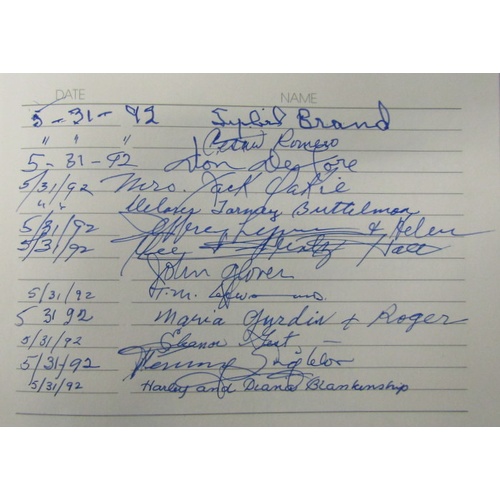 DATE NAME
5-31-92 Sybil Brand
" " " Cesar Romero
5-31-92 Don DeFore
5/31/92 Mrs. Jack Oakie
" " Buttelman
5/31/92 & Helen
5/31/92
John Glover
5/31/92 H.M.
5 31 92 Maria Gurdin & Roger
5/31/92 Eleanor
5/31/92 Penny Singleton
5/31/92 Harley and Diana Blankenship